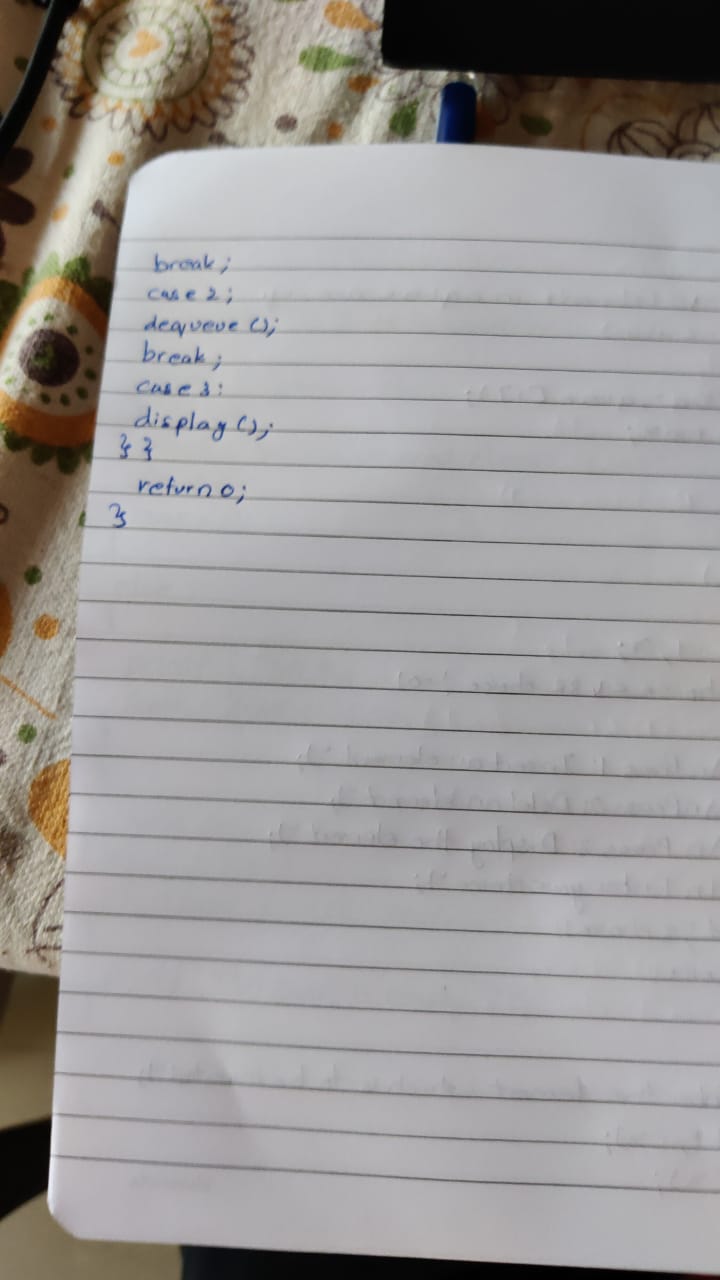 break;
case 2;
dequeue ();
break;
case 3:
display ();
} }
return 0;
}